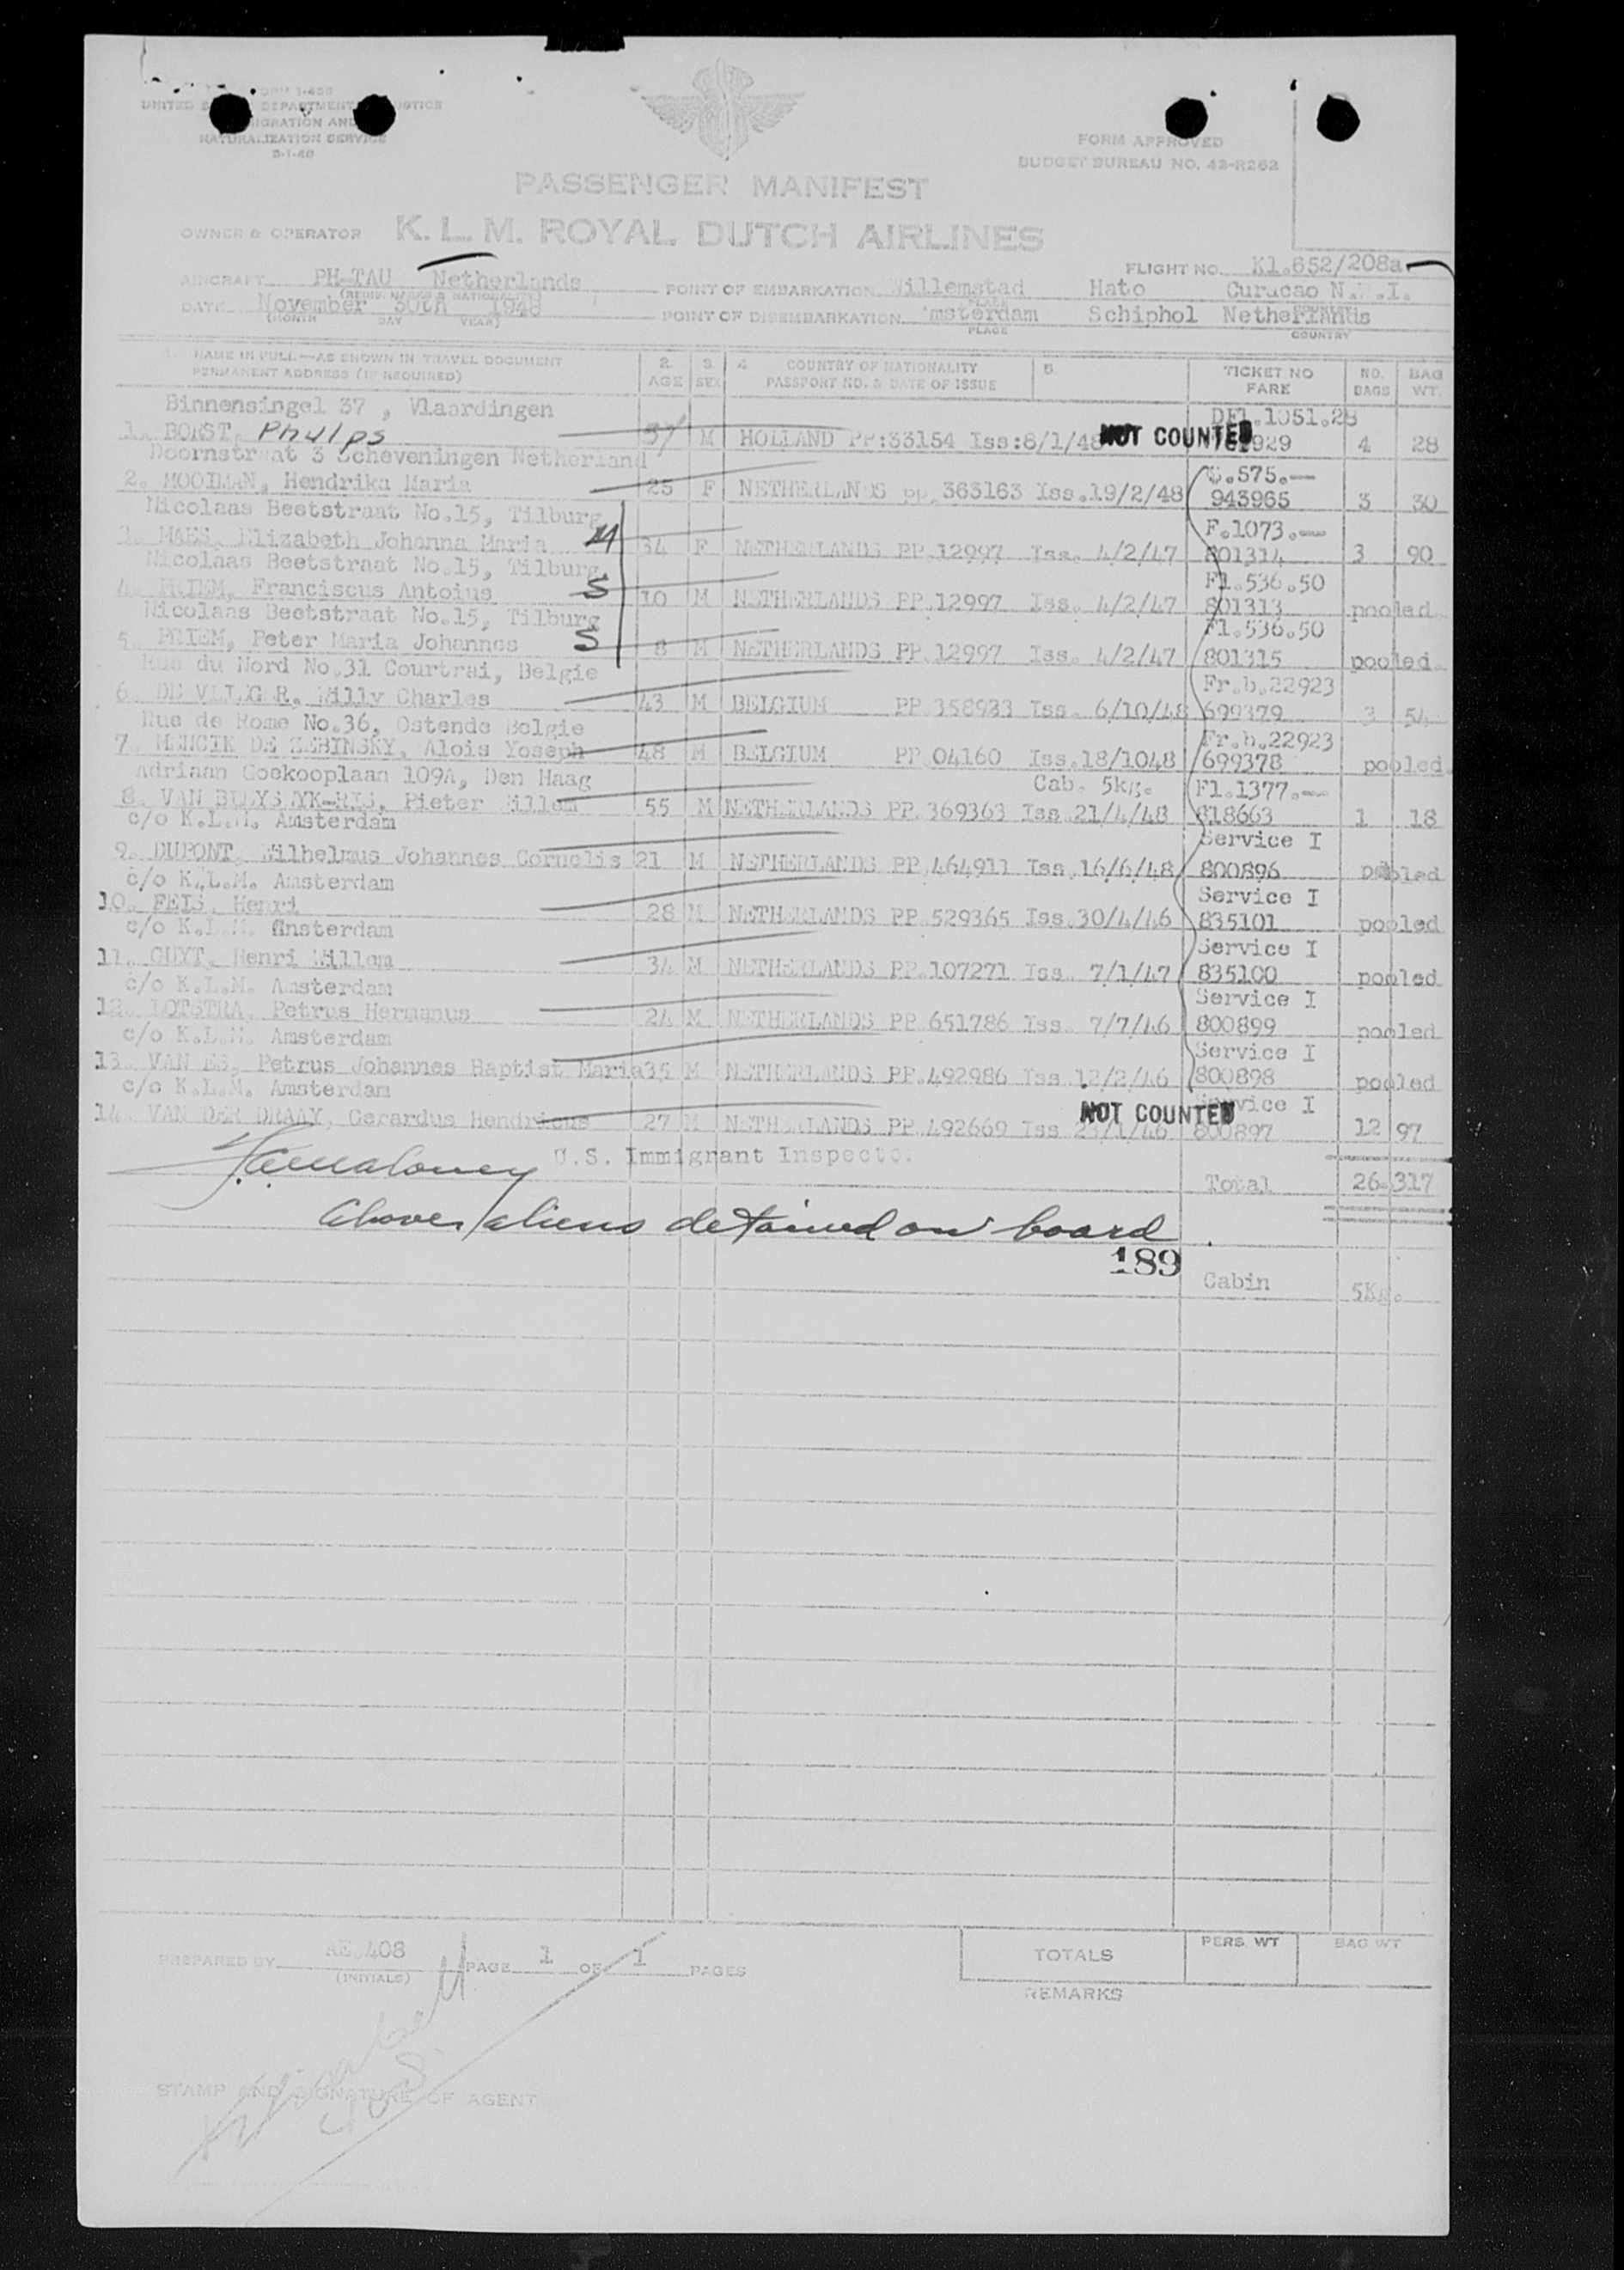 FORM I-466
UNITED DEPARTMENT
IMMIGRATION AND
NATURALIZATION SERVICE
FORM APPROVED
BUDGET BUREAU NO. 43-R262
PASSENGER MANIFEST
OWNER & OPERATOR K. L. M. ROYAL DUTCH AIRLINES
FLIGHT NO. Kl.652/208a
AIRCRAFT PH-TAU Netherlands POINT OF EMBARKATION Willemstad Hato Curacao
DATE November 30th 1948 POINT OF DISEMBARKATION Amsterdam Schiphol Netherlands
(MONTH DAY YEAR) PLACE COUNTRY
1. NAME IN FULL—AS SHOWN IN TRAVEL DOCUMENT 2. 3. 4. COUNTRY OF NATIONALITY 5. TICKET NO NO. BAG
PERMANENT ADDRESS (IF REQUIRED) AGE SEX PASSPORT NO. & DATE OF ISSUE FARE BAGS WT.
Binnensingel 37 , Vlaardingen DFl.1051.28
1. BORST, Phulps 57 M HOLLAND PP:33154 Iss:8/1/48 NOT COUNTED 929 4 28
Doornstraat 3 Scheveningen Netherland $.575.—
2. MOOIMAN, Hendrika Maria 25 F NETHERLANDS pp. 363163 Iss.19/2/48 943965 3 30
Nicolaas Beetstraat No.15, Tilburg F.1073.—
3. MAES, Elizabeth Johanna Maria M 34 F NETHERLANDS PP.12997 Iss. 4/2/47 801314 3 90
Nicolaas Beetstraat No.15, Tilburg Fl.536.50
4. PRIEM, Franciscus Antoius S 10 M NETHERLANDS PP.12997 Iss. 4/2/47 801313 pooled
Nicolaas Beetstraat No.15, Tilburg Fl.536.50
5. PRIEM, Peter Maria Johannes S 8 M NETHERLANDS PP.12997 Iss. 4/2/47 801315 pooled
Rue du Nord No.31 Courtrai, Belgie Fr.b.22923
6. DE VLIEGER, Willy Charles 43 M BELGIUM PP.358933 Iss. 6/10/48 699379 3 54
Rue de Rome No.36, Ostende Belgie Fr.b.22923
7. MENCIK DE ZEBINSKY, Alois Yoseph 48 M BELGIUM PP.04160 Iss.18/1048 699378 pooled
Adriaan Goekooplaan 109A, Den Haag Cab. 5kg. Fl.1377.—
8. VAN Pieter Willem 55 M NETHERLANDS PP.369363 Iss.21/4/48 818663 1 18
c/o K.L.M. Amsterdam Service I
9. DUPONT, Wilhelmus Johannes Cornelis 21 M NETHERLANDS PP.464911 Iss.16/6/48 800896 pooled
c/o K.L.M. Amsterdam Service I
10. FEIS, Henri 28 M NETHERLANDS PP.529365 Iss.30/4/46 835101 pooled
c/o K.L.M. Amsterdam Service I
11. GUYT, Henri Willem 34 M NETHERLANDS PP.107271 Iss. 7/1/47 835100 pooled
c/o K.L.M. Amsterdam Service I
12. LOTSTRA, Petrus Hermanus 24 M NETHERLANDS PP.651786 Iss. 7/7/46 800899 pooled
c/o K.L.M. Amsterdam Service I
13. VAN ES, Petrus Johannes Baptist Maria 35 M NETHERLANDS PP.492986 Iss.12/2/46 800898 pooled
c/o K.L.M. Amsterdam NOT COUNTED Service I
14. VAN DER DRAAY, Gerardus Hendricus 27 M NETHERLANDS PP.492669 Iss 800897 12 97
U.S. Immigrant Inspector
Total 26. 317
Above aliens detained on board
189
Cabin 5Kg.
PREPARED BY AE.408 PAGE 1 OF 1 PAGES
(INITIALS)
TOTALS PERS. WT BAG WT
REMARKS
STAMP AND SIGNATURE OF AGENT